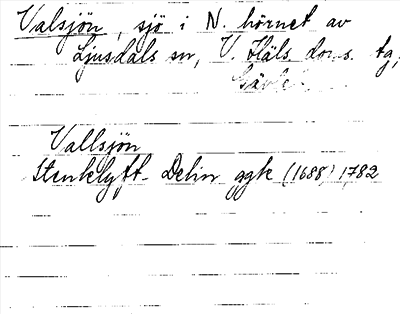 Valsjön, sjö i N. hörnet av
Ljusdals sn, V. Häls. doms. tg,
Gävleb.
Vallsjön
Stenklyft- Delin ggk (1688) 1782